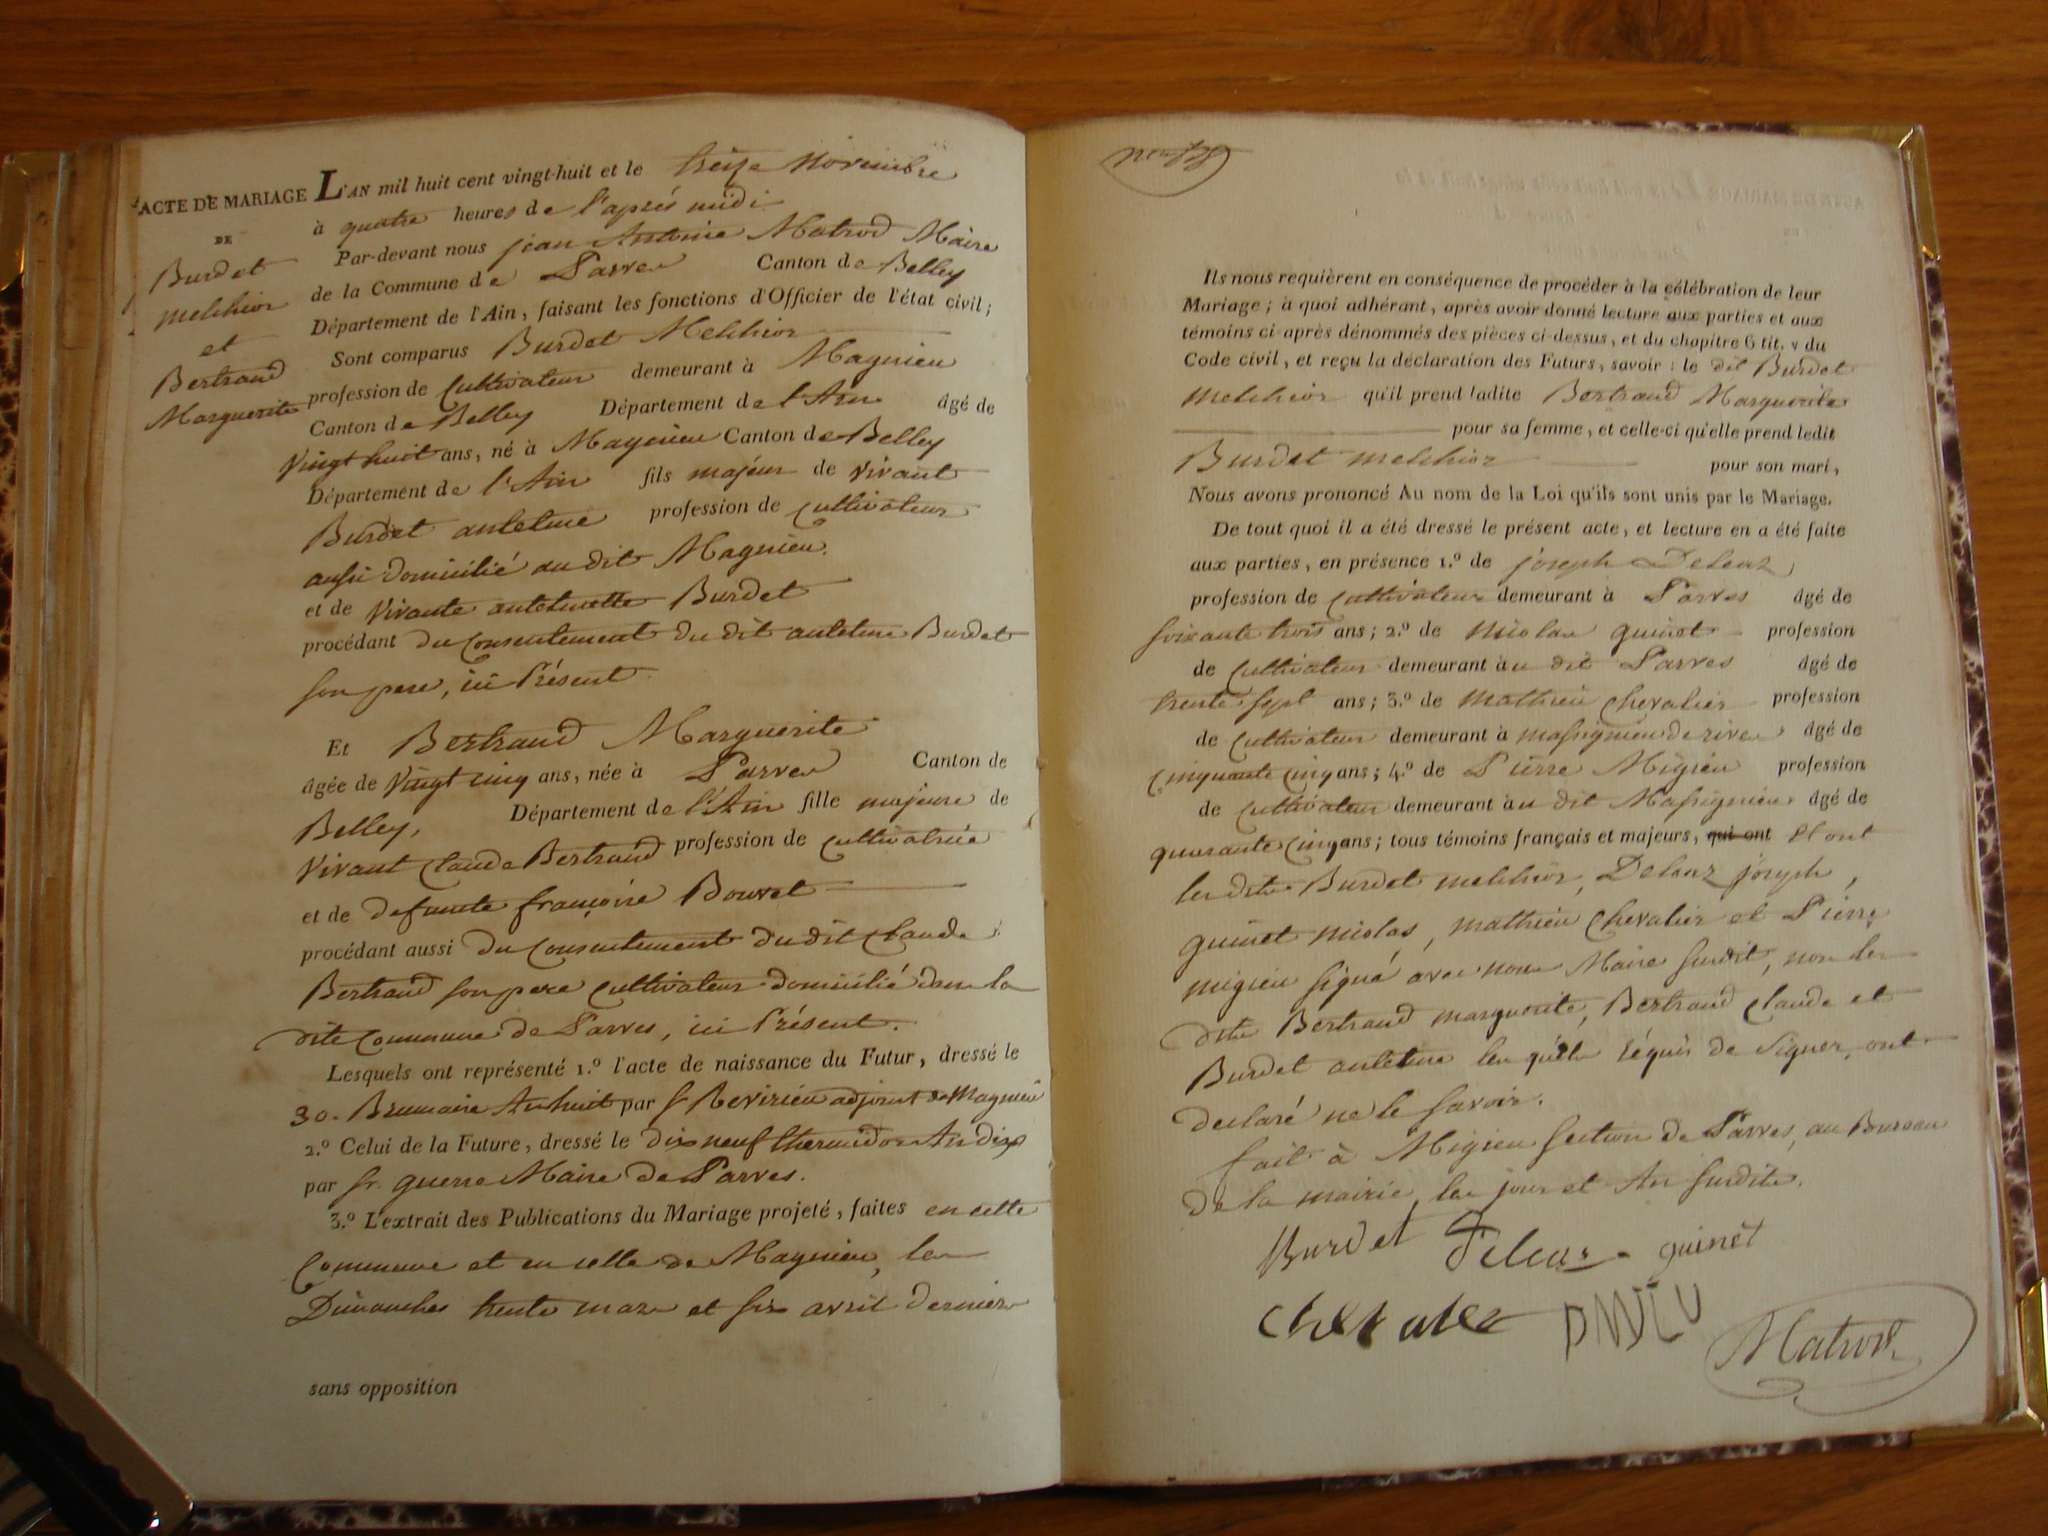 ACTE DE MARIAGE
DE
Burdet
melchior
et
Bertrand
Marguerite
L'AN mil huit cent vingt-huit et le treize Novembre
à quatre heures de l'aprés midi
Par-devant nous jean Antoine Matrod Maire
de la Commune de Parves Canton de Belley
Département de l'Ain, faisant les fonctions d'Officier de l'état civil;
Sont comparus Burdet Melchior
profession de Cultivateur demeurant à Magnieu
Canton de Belley Département de l'Ain âgé de
Vingt huit ans, né à Magnieu Canton de Belley
Département de l'Ain fils majeur de vivant
Burdet antelme profession de cultivateur
aussi domicilié au dit Magnieu.
et de Vivante antelmette Burdet
procédant du Consentement du dit antelme Burdet
son pere, ici Présent.
Et Bertrand Marguerite
âgée de Vingt cinq ans, née à Parves Canton de
Belley, Département de l'Ain fille majeure de
Vivant Claude Bertrand profession de cultivatrice
et de defunte françoise Bouvet
procédant aussi du Consentement du dit Claude
Bertrand son pere cultivateur domicilié dans la
dite Commune de Parves, ici Présent.
Lesquels ont représenté 1.º l'acte de naissance du Futur, dressé le
30. Brumaire An huit par sr Revirieu adjoint de Magnieu
2.º Celui de la Future, dressé le dix neuf thermidor An dix
par sr. guerre Maire de Parves.
3.º L'extrait des Publications du Mariage projeté, faites en cette
Commune et en celle de Magnieu, les
Dimanches trente mars et six avril dernier
sans opposition
Ils nous requièrent en conséquence de procéder à la célébration de leur
Mariage; à quoi adhérant, après avoir donné lecture aux parties et aux
témoins ci-après dénommés des pièces ci-dessus, et du chapitre 6 tit. v du
Code civil, et reçu la déclaration des Futurs, savoir: le dit Burdet
melchior qu'il prend ladite Bertrand Marguerite
pour sa femme, et celle-ci qu'elle prend ledit
Burdet melchior pour son mari,
Nous avons prononcé Au nom de la Loi qu'ils sont unis par le Mariage.
De tout quoi il a été dressé le présent acte, et lecture en a été faite
aux parties, en présence 1.º de joseph Delenz
profession de cultivateur demeurant à Parves âgé de
soixante trois ans; 2.º de Nicolas guinet profession
de Cultivateur demeurant àu dit Parves âgé de
trente sept ans; 3.º de Mathieu Chevalier profession
de Cultivateur demeurant à Massignieu de rives âgé de
Cinquante Cinq ans; 4.º de Pierre Migieu profession
de Cultivateur demeurant àu dit Massignieu âgé de
quarante Cinq ans; tous témoins français et majeurs, qui ont Et ont
les dits Burdet melchior, Delenz joseph,
guinet nicolas, mathieu Chevalier et Pierre
migieu signé avec nous Maire susdit, non les
dits Bertrand marguerite, Bertrand Claude et
Burdet antelme les quels réquis de signer, ont
declaré ne le savoir.
fait à Migieu section de Parves, au Bureau
de la mairie, les jour et An susdits.
Burdet Delenz guinet
Chevalier
Matrod